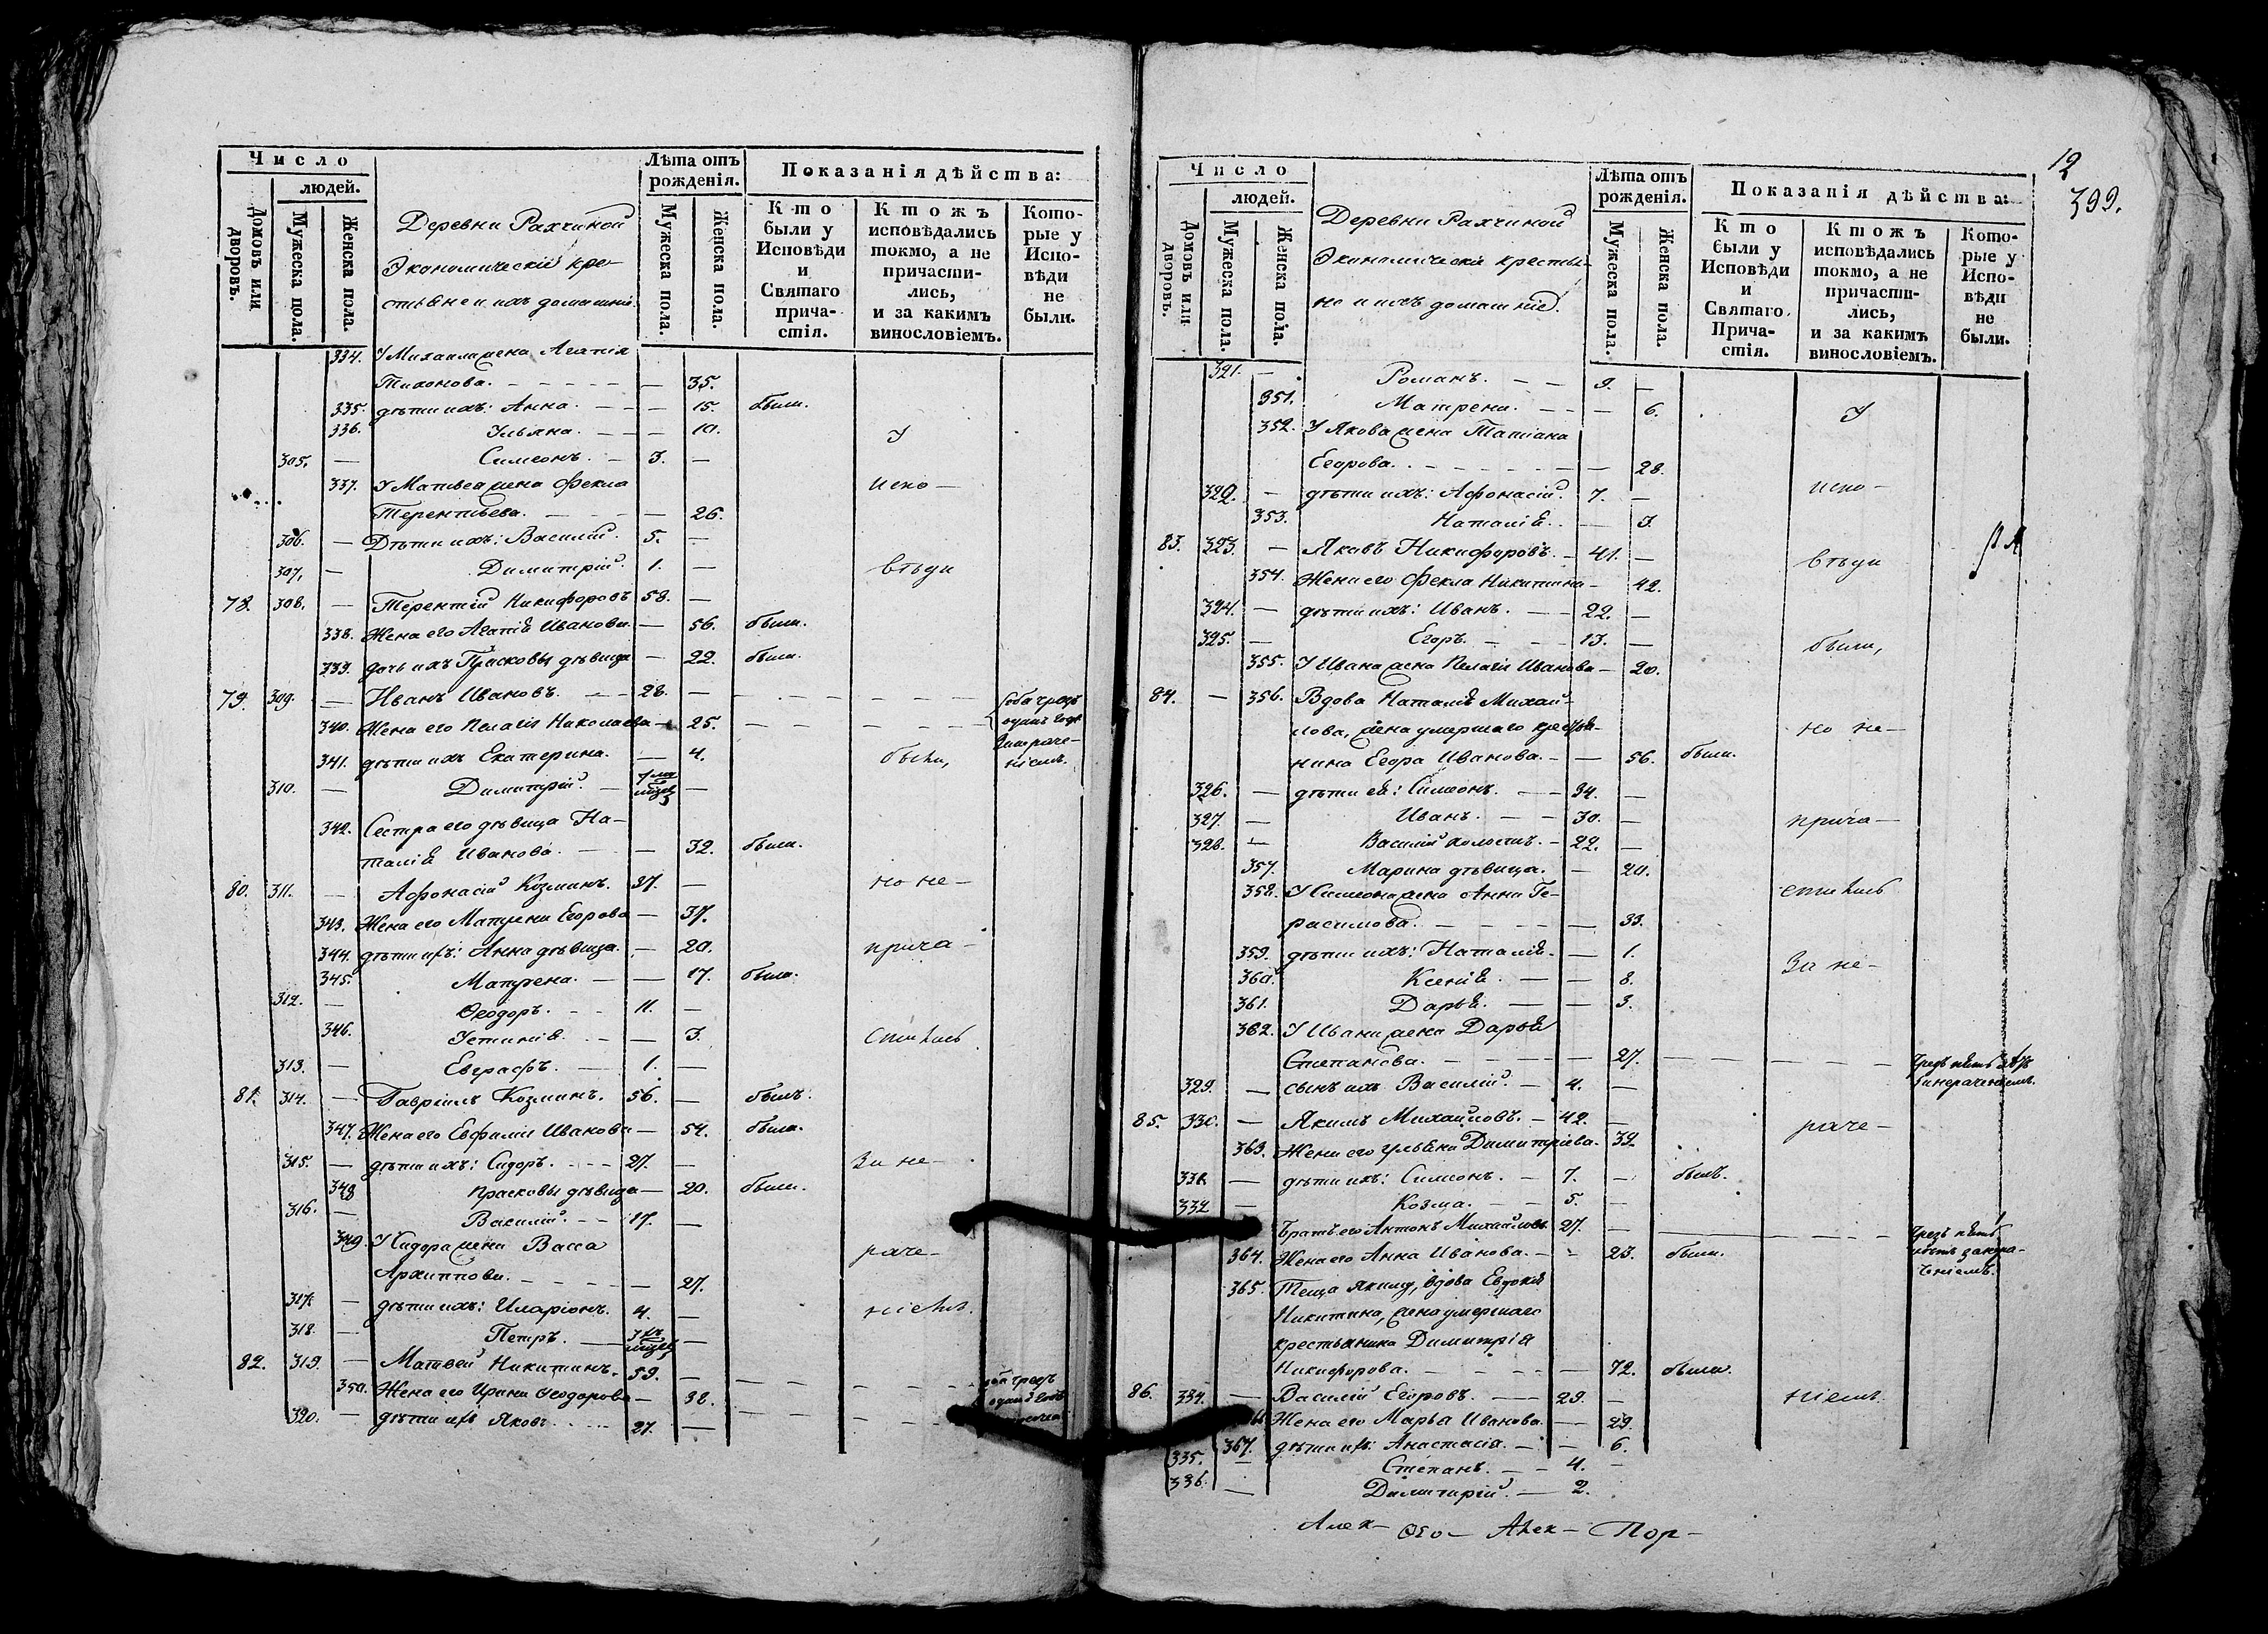 Число
людей.
Домовъ или дворовъ.
Мужеска пола.
Женска пола.
Деревни Рахчиной
Экономическіе кре-
стьяне и ихъ домашніе.
Лѣта отъ рожденія.
Мужеска пола.
Женска пола.
Показанія дѣйства:
Кто были у Исповѣди и Святаго прича-стія.
Ктожъ исповѣдались токмо, а не причасти-лись, и за какимъ винословіемъ.
Кото-рые у Испо-вѣди не были.
334. У Михаила жена Агапія
Тихонова. — — 35.
335. дѣти ихъ: Анна. — — 15. были.
336. Ульяна. — — 10. У
305. — Симеонъ. — 3. —
337. У Матвея жена Фекла испо-
Терентьева. — — 26.
306. — Дѣти ихъ: Василій. 5. —
307. — Димитрій. 1. — вѣди
78. 308. — Терентій Никифоровъ 58. —
338. Жена его Агапія Иванова — 56. были.
339. дочь ихъ Прасковья дѣвица — 22. была.
79. 309. — Иванъ Ивановъ. — 28. — оба чрезъ
340. Жена его Пелагія Николаева — 25. одинъ годъ
341. дѣти ихъ Екатерина. — 4. были,
310. — Димитрій. —
342. Сестра его дѣвица На-
талія Иванова. — — 32. была.
80. 311. — Афонасій Козминъ. 37. — но не-
343. Жена его Матрена Егорова — 37.
344. дѣти ихъ: Анна дѣвица. — 20. прича-
345. Матрена. — — 17. были.
312. — Ѳеодоръ. — 11. —
346. Устинія. — — 3. стились
313. — Еверафъ. — 1. —
81. 314. — Гавріилъ Козминъ. 56. — былъ.
347. Жена его Евфимія Иванова — 54. была.
315. — дѣти ихъ: Сидоръ. — 27. — За не-
348 Прасковья дѣвица — 20. были.
316. — Василій. — 17. —
349. У Сидора жена Васса раче-
Архиппова. — — 27.
317. — дѣти ихъ: Иларіонъ. 4. — ніемъ.
318. — Петръ. —
82. 319. — Матвей Никитинъ. 59. —
350. Жена его Ирина Ѳеодорова — 38.
320. — дѣти ихъ Яковъ. — 27. —
12
399.
Число
людей.
Домовъ или дворовъ.
Мужеска пола.
Женска пола.
Деревни Рахчиной
Экономическіе крестья-
не и ихъ домашніе.
Лѣта отъ рожденія.
Мужеска пола.
Женска пола.
Показанія дѣйства:
Кто были у Исповѣди и Святаго Прича-стія.
Ктожъ исповѣдались токмо, а не причасти-лись, и за какимъ винословіемъ.
Кото-рые у Испо-вѣди не были.
321. — Романъ. — 9. —
351. Матрена. — — 6. У
352. У Якова жена Татіана
Егорова. — — 28.
322. — дѣти ихъ: Афонасій. 7. — испо-
353. Наталія. — 3.
83. 323. — Яковъ Никифоровъ. — 41. —
354. Жена его Фекла Никитина — 42. вѣди
324. — дѣти ихъ: Иванъ. — 22. —
325. — Егоръ. — 13. — были,
355. У Ивана жена Пелагія Иванова — 20.
84. — 356. Вдова Наталія Михай-
лова, жена умершаго крестья- но не-
нина Егора Иванова. — — 56. были.
326. — дѣти ея: Симеонъ. — 34. —
327 — Иванъ. — 30. — прича-
328. — Василій холостъ. — 22. —
357. Марина дѣвица. — 20.
358. У Симеона жена Анна Ге- стились
расимова. — — 33.
359. дѣти ихъ: Наталія. — 1. За не-
360. Ксенія. — — 8.
361. Дарья. — — 3.
362. У Ивана жена Дарья
Степанова. — — 27. —
329. — сынъ ихъ Василій. — 4. —
85. 330. — Якимъ Михайловъ. — 42. — раче-
363. Жена его Ульяна Димитріева. 39.
331. — дѣти ихъ: Симеонъ. — 7. — былъ.
332 — Козма. — 5. —
Братъ его Антонъ Михайловъ. 27. —
364. Жена его Анна Иванова. — 23. были.
365. Теща Якиму, вдова Евдокія
Никитина, жена умершаго
крестьянина Димитрія
Никифорова. — — 72. были.
86. 334. — Василій Егоровъ. — 29. — ніемъ.
Жена его Марья Иванова. — 29.
367. дѣти ихъ: Анастасія. — 6.
335. — Степанъ. — 4. —
336. — Димитрій. — 2.
Алек- Ѳео- Алек- Пор-